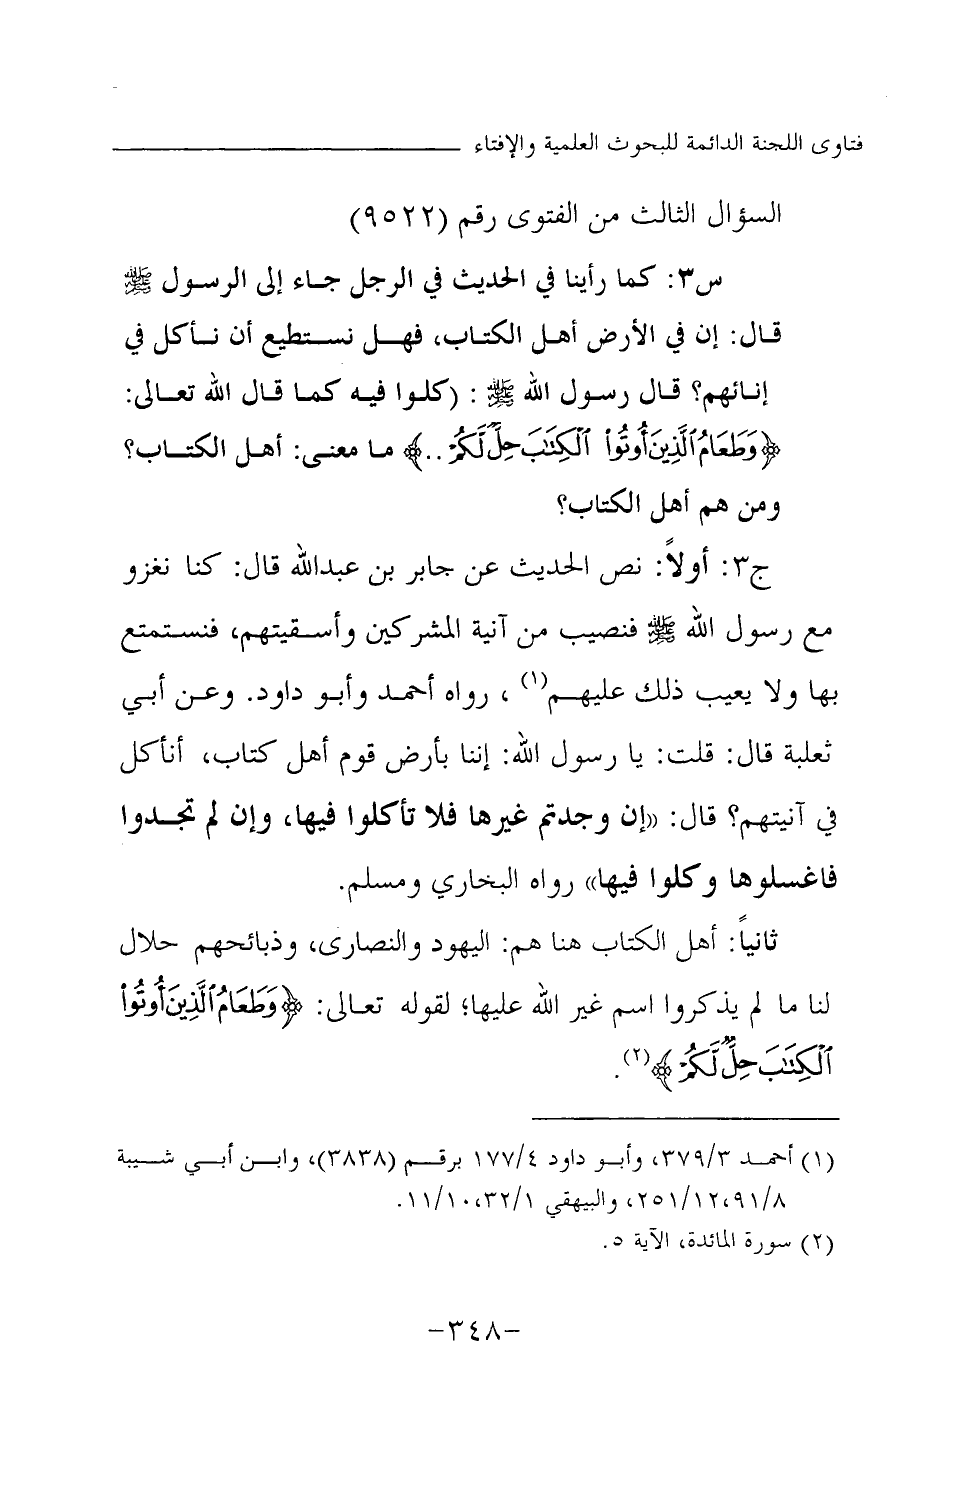 فتاوى اللجنة الدائمة للبحوث العلمية والإفتاء
السؤال الثالث من الفتوى رقم (٩٥٢٢)
س٣: كما رأينا في الحديث في الرجل جاء إلى الرسول ﷺ
قال: إن في الأرض أهل الكتاب، فهل نستطيع أن نأكل في
إنائهم؟ قال رسول الله ﷺ : (كلوا فيه كما قال الله تعالى:
﴿وَطَعَامُ ٱلَّذِينَ أُوتُوا۟ ٱلْكِتَٰبَ حِلٌّ لَّكُمْ ..﴾ ما معنى: أهل الكتاب؟
ومن هم أهل الكتاب؟
ج٣: أولاً: نص الحديث عن جابر بن عبدالله قال: كنا نغزو
مع رسول الله ﷺ فنصيب من آنية المشركين وأسقيتهم، فنستمتع
بها ولا يعيب ذلك عليهم(١) ، رواه أحمد وأبو داود. وعن أبي
ثعلبة قال: قلت: يا رسول الله: إننا بأرض قوم أهل كتاب، أنأكل
في آنيتهم؟ قال: «إن وجدتم غيرها فلا تأكلوا فيها، وإن لم تجدوا
فاغسلوها وكلوا فيها» رواه البخاري ومسلم.
ثانياً: أهل الكتاب هنا هم: اليهود والنصارى، وذبائحهم حلال
لنا ما لم يذكروا اسم غير الله عليها؛ لقوله تعالى: ﴿وَطَعَامُ ٱلَّذِينَ أُوتُوا۟
ٱلْكِتَٰبَ حِلٌّ لَّكُمْ﴾(٢).
(١) أحمد ٣٧٩/٣، وأبو داود ١٧٧/٤ برقم (٣٨٣٨)، وابن أبي شيبة
٩١/٨، ٢٥١/١٢، والبيهقي ٣٢/١، ١١/١٠.
(٢) سورة المائدة، الآية ٥.
-٣٤٨-